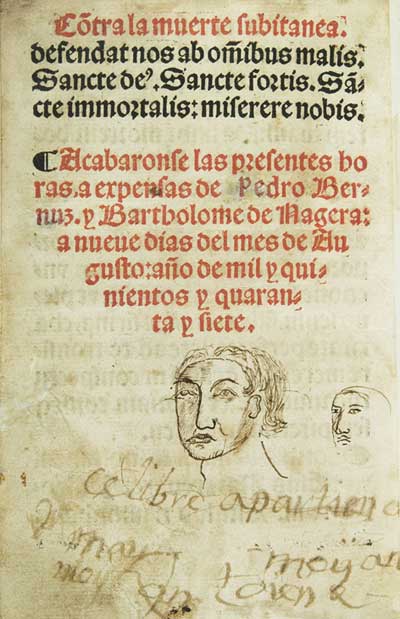 Cõtra la muerte subitanea.
defendat nos ab om̃ibus malis.
Sancte de⁹. Sancte fortis. Sã-
cte immortalis: miserere nobis.
¶ Acabaronse las presentes ho
ras. a expensas de Pedro Ber-
nuz. y Bartholome de Nagera:
a nueue dias del mes de Au
gusto: año de mil y qui-
nientos y quaran-
ta y siete.
ce libre apartien
a may moyan
moy an toene